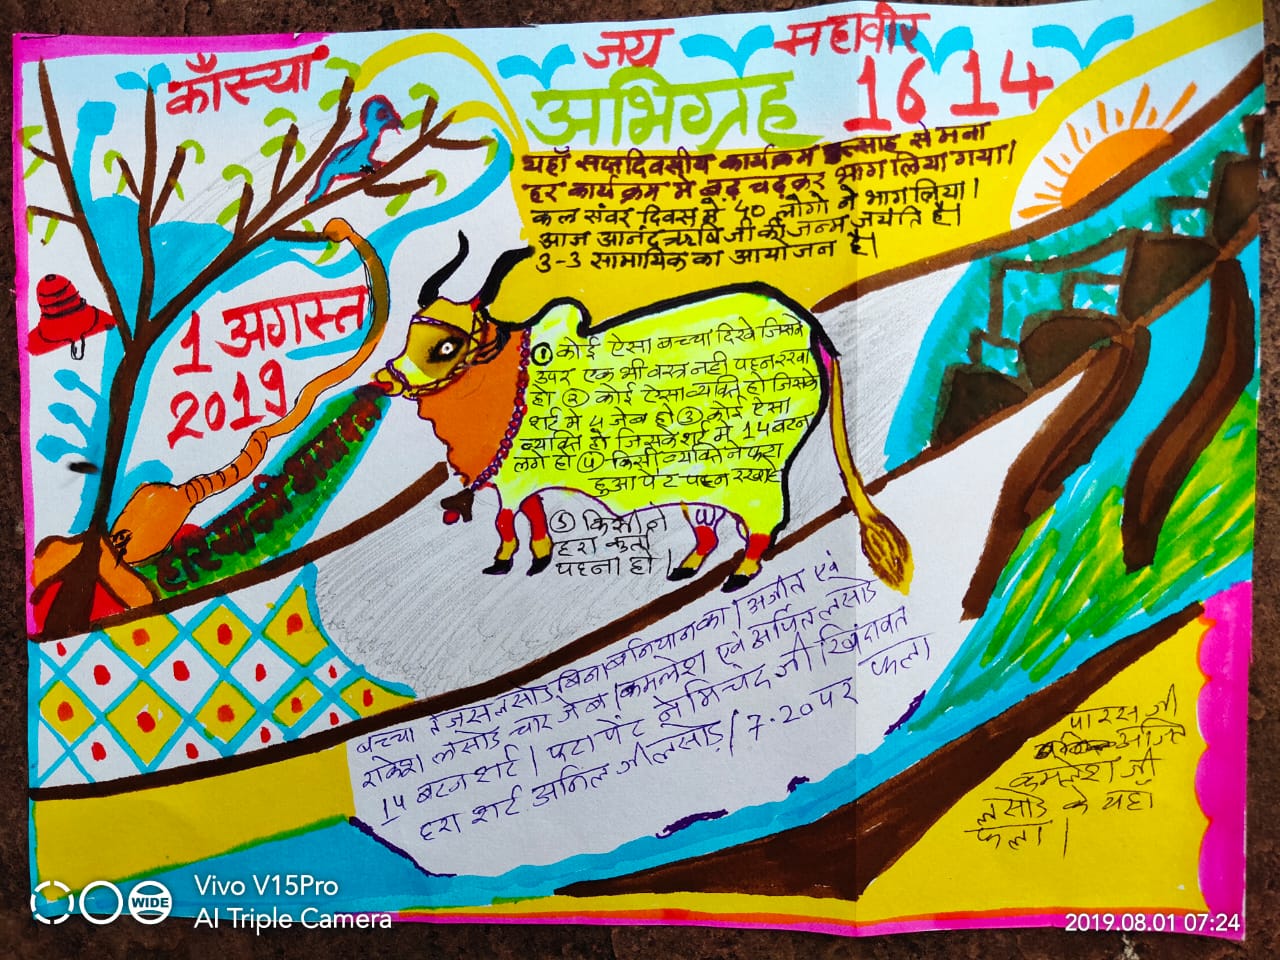 जय महावीर
काँस्यां
अभिग्रह 1614
यहाँ सप्तदिवसीय कार्यक्रम उत्साह से मना
हर कार्यक्रम मे बढ़ चढ़कर भाग लिया गया।
कल संवर दिवस मे 40 लोगो ने भाग लिया।
आज आनंदऋषि जी की जन्म जयंति है।
3-3 सामायिक का आयोजन है।
1 अगस्त
2019
① कोई ऐसा बच्चा दिखे जिसके
उपर एक भी वस्त्र नही पहन रखा
हो ② कोई ऐसा व्यक्ति हो जिसके
शर्ट मे 4 जेब हो ③ कोई ऐसा
व्यक्ति हो जिसके शर्ट मे 14 बटन
लगे हो ④ किसी व्यक्ति ने फटा
हुआ पेंट पहन रखा हो
⑤ किसी ने
हरा कुर्ता
पहना हो।
बच्चा तेजस लसोड़ बिना बनियान का। अजीत एवं
राकेश लसोड़ चार जेब। कमलेश एवं अर्पित लसोड़
14 बटन शर्ट। फटा पेंट नेमिचंद जी खिंदावत
हरा शर्ट अनिल जी लसोड़। 7.20 पर फला
पारस जी
अजित
कमलेश जी
लसोड़ के यहाँ
फला।
Vivo V15Pro
WIDE
AI Triple Camera
2019.08.01 07:24